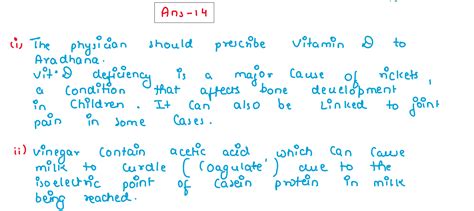 Ans-14
(i) The physician should prescribe Vitamin D to
Aradhana.
Vit. D deficiency is a major cause of rickets,
a condition that affects bone development
in children. It can also be linked to joint
pain in some cases.
ii) Vinegar contain acetic acid which can cause
milk to curdle (coagulate) due to the
isoelectric point of casein protein in milk
being reached.